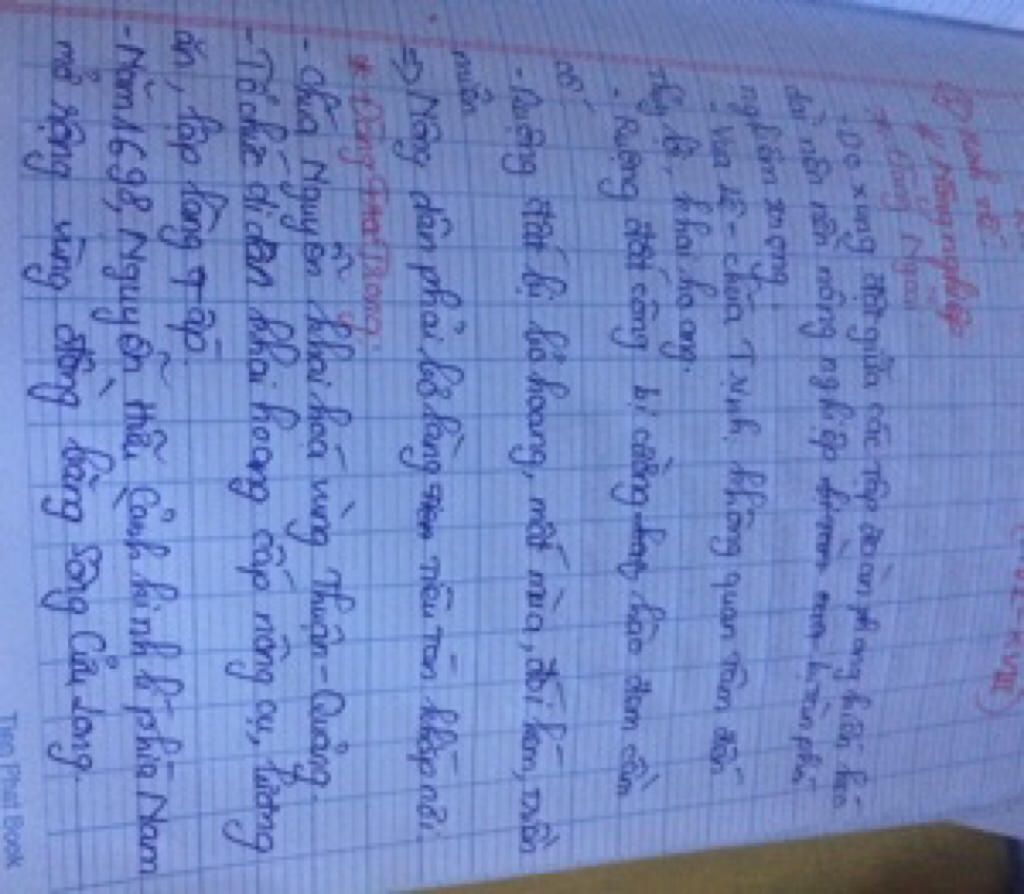 (XVI - XVIII)
I Kinh tế
* Nông nghiệp
* Đàng Ngoài
- Do xung đột giữa các tập đoàn phong kiến kéo
dài nên nền nông nghiệp bị tàn phá
nghiêm trọng.
- Vua Lê - chúa Trịnh không quan tâm đến
thủy lợi, khai hoang.
- Ruộng đất công bị cường hào đem cầm
cố.
- Ruộng đất bị bỏ hoang, mất mùa, đói kém, triền
miên
=> Nông dân phải bỏ làng phiêu tán khắp nơi.
* Đàng Trong.
- Chúa Nguyễn khai hoá vùng Thuận - Quảng.
- Tổ chức di dân khai hoang cấp nông cụ, lương
ăn, lập làng ấp.
- Năm 1698, Nguyễn Hữu Cảnh kinh lí phía Nam
mở rộng vùng đồng bằng sông Cửu Long.
Tien Phat Book